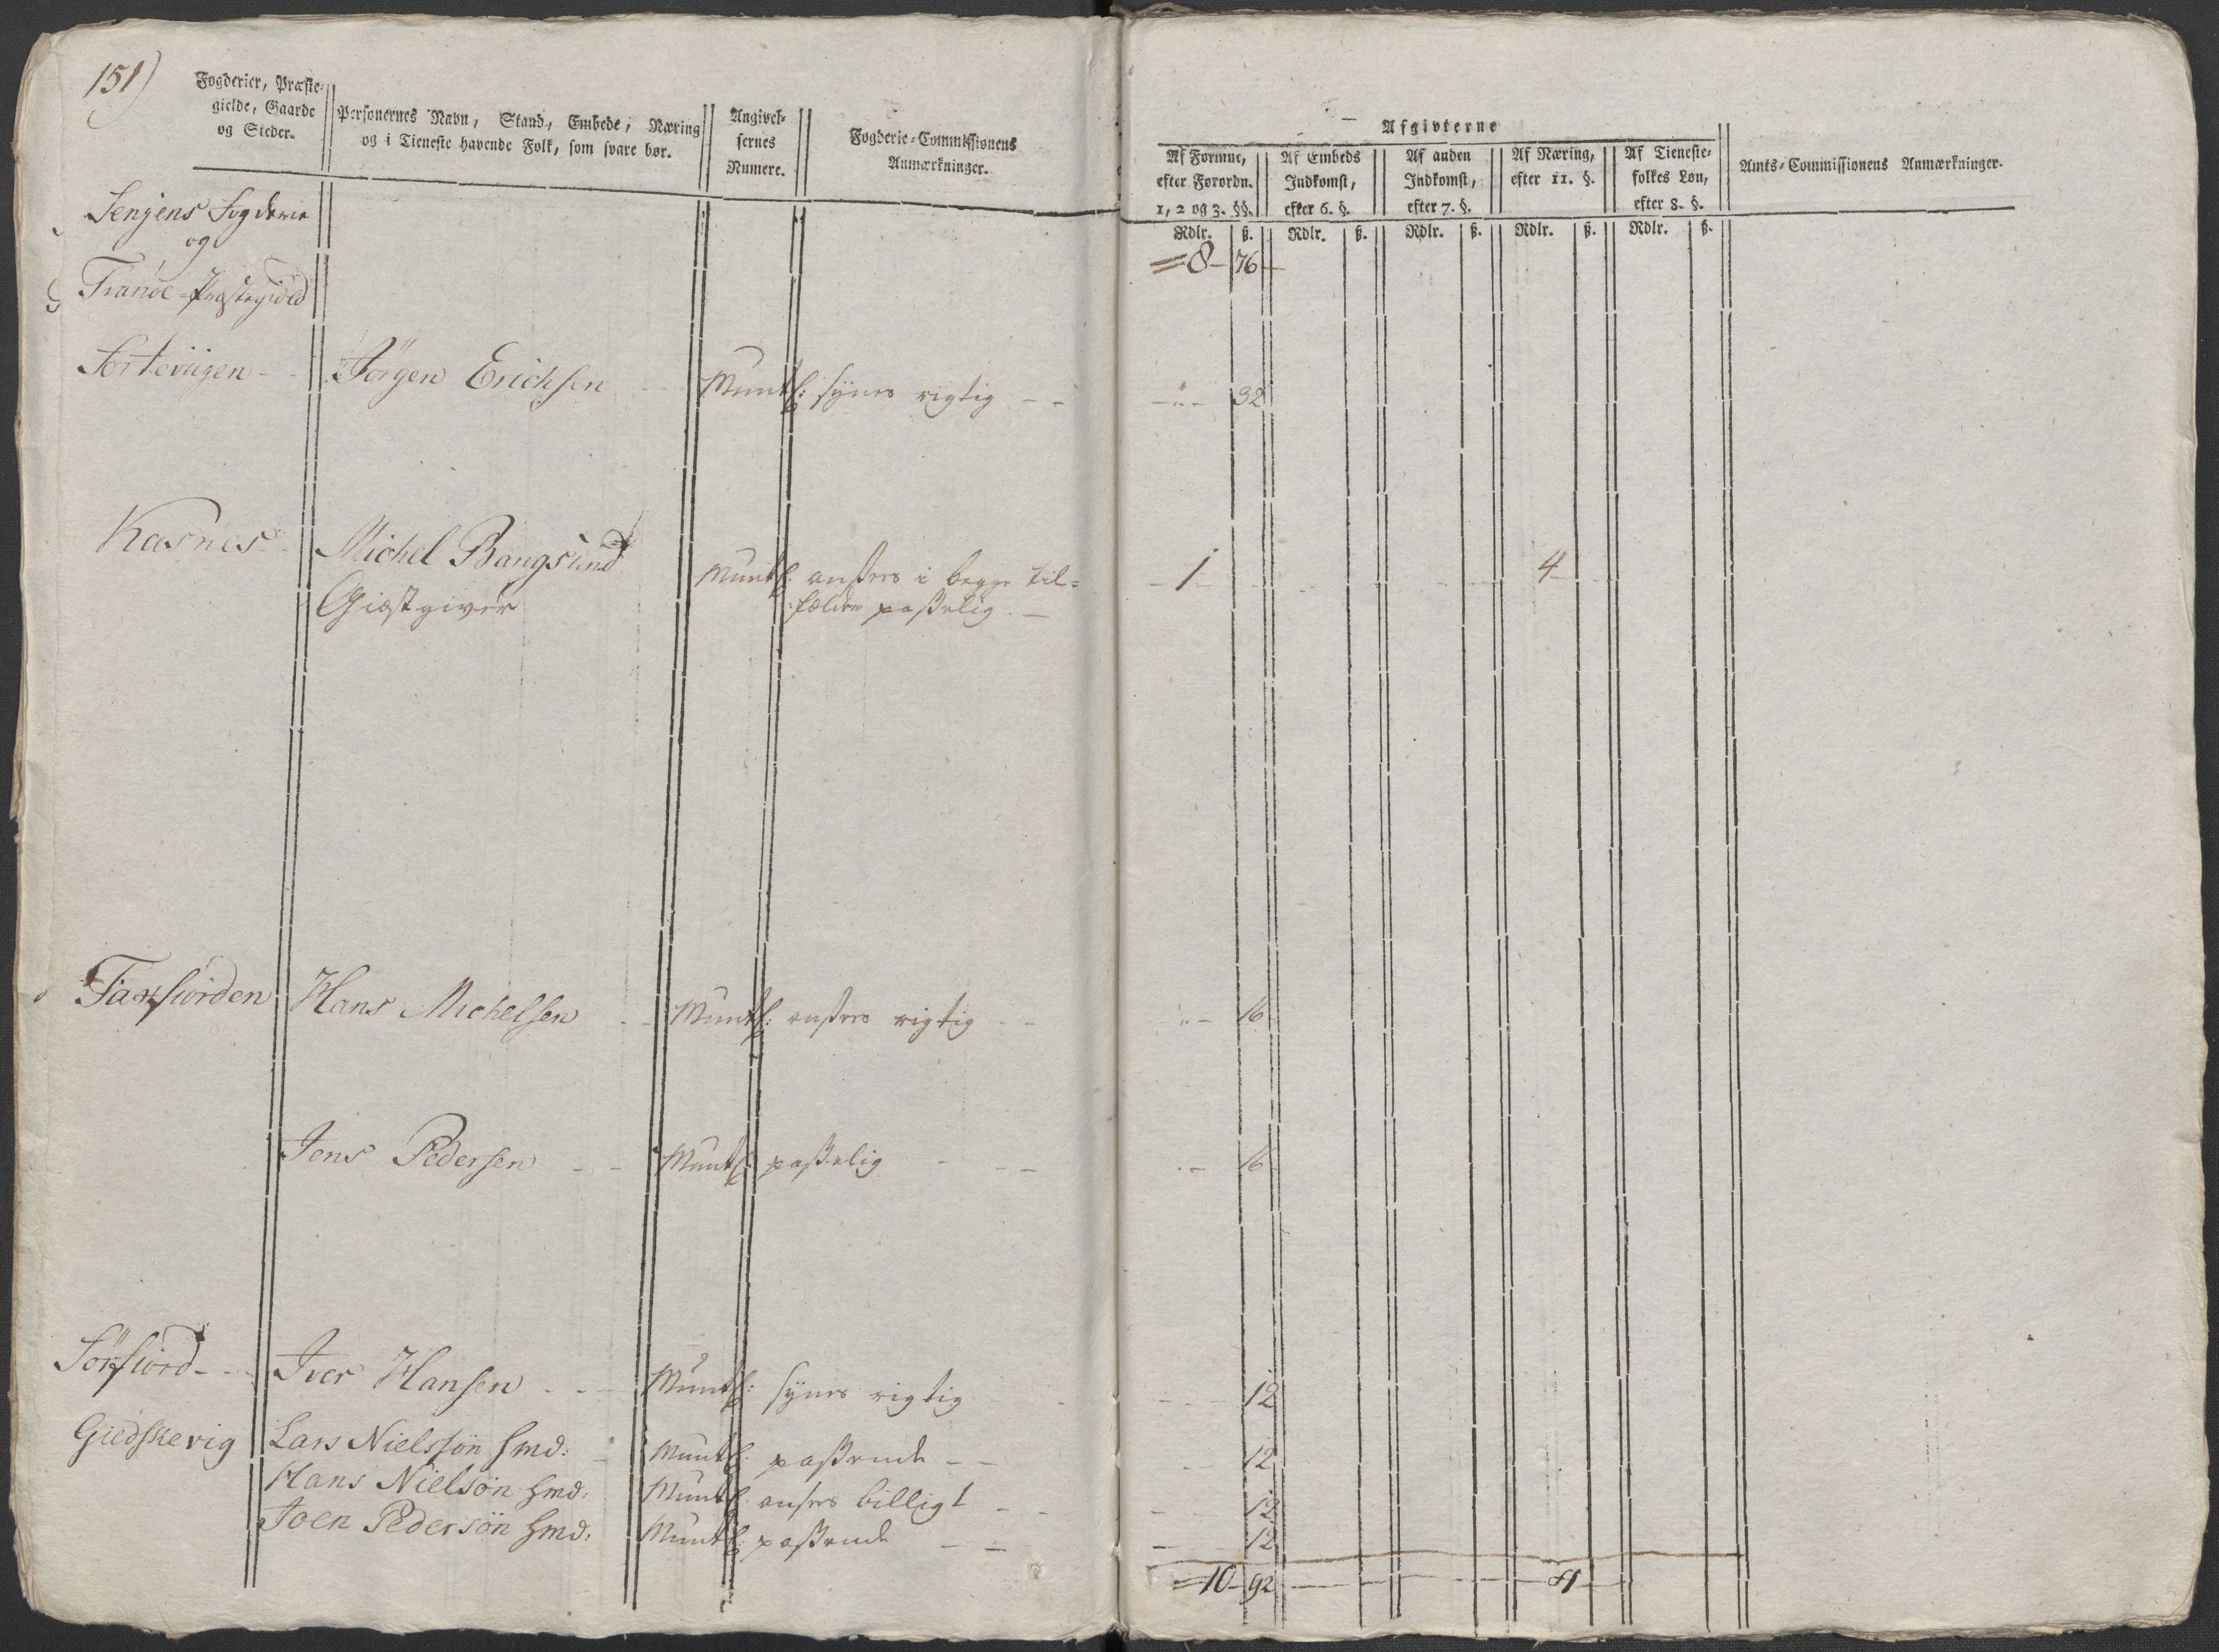 151)
Fogderier, Præste-
gielde, Gaarde
og Steder.
Personernes Navn, Stand, Embede, Næring
og i Tieneste havende Folk, som svare bør.
Angivel-
sernes
Numere.
Fogderie-Commissionens
Anmærkninger.
Afgivterne
Af Formue,
efter Forordn.
1, 2 og 3. §§.
Af Embeds
Indkomst,
efter 6. §.
Af anden
Indkomst,
efter 7. §.
Af Næring,
efter 11. §.
Af Tieneste-
folkes Løn,
efter 8. §.
Amts-Commissionens Anmærkninger.
Rdlr. ß. Rdlr. ß. Rdlr. ß. Rdlr. ß. Rdlr. ß.
Senjens Fogderie
og
Tranöe-Præstegield
= 8 - 76 -
Jörgen Erichsen - Muntl: synes rigtig - - - " - 32
Kasnes Michel Bangsund Muntl: ansees i begge til= - 1 - - 4 -
Giæstgiver :fælder passelig -
Hans Michelsen - - Muntl: ansees rigtig - - " - 16
Jens Pedersen - - Muntl: passelig - - - - 16
Sörfiord - - Iver Hansen - - Muntl: synes rigtig - - 12
Giedskevig Lars Nielssön Hmd: - Muntl: passende - - - 12
Hans Nielsön Hmd: Muntl: ansees billigt - - 12
Joen Pedersön Hmd: Muntl: passende - - - 12
= 10 - 92 - - - 4 -